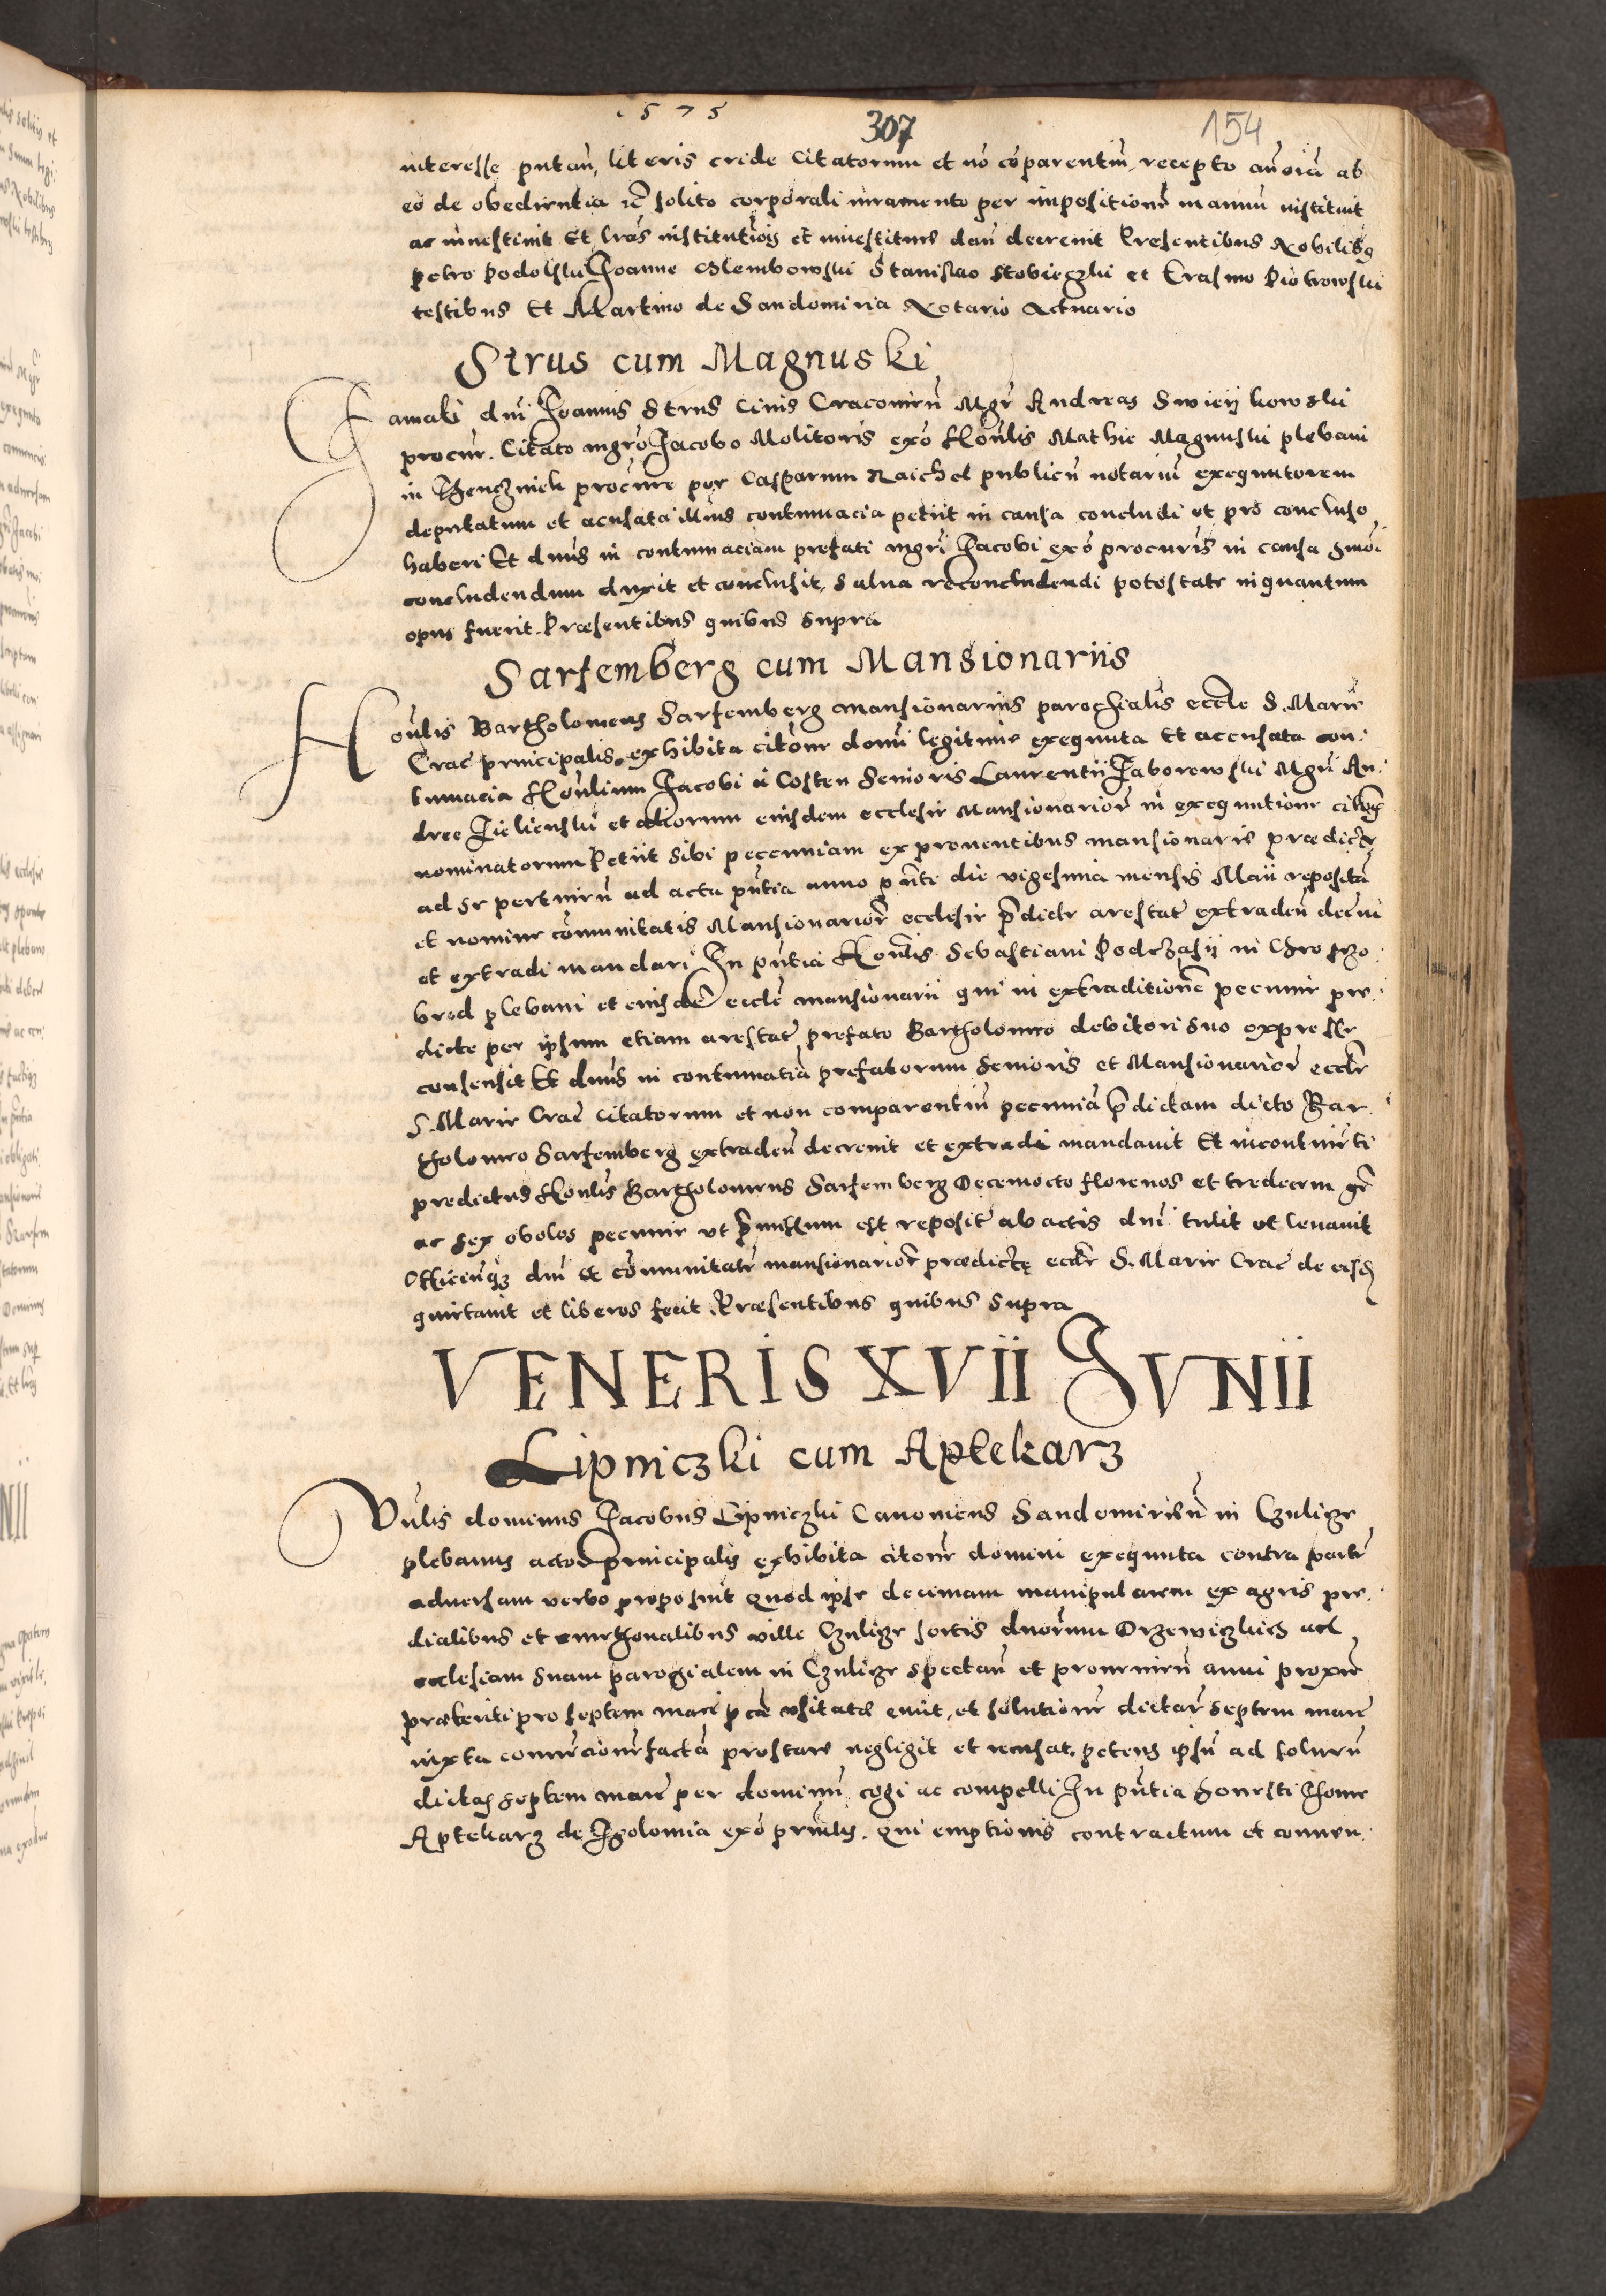 1575
307 154
interesse putan̄, literis cride citatorum et nō cōparentiū, recepto
eō de obedientia solito corporali iuramento per impositionē manuū instituit
ac inuestiuit Et lrās institutiōis et inuestiture dan̄ decreuit Presentibus Nobilibꝫ
Petro Podolski Joanne Glembowski Stanislao et Erasmo Piotrowski
testibus Et Martino de Sandomiria Notario Actuario
Strus cum Magnuski
Famati dnī Joannis Strus Ciuis Cracouien̄ Mgr̄ Andreas
procur. Citato mgrō Jacobo Molitoris exō Honlīs Mathie Magnuski plebani
in procūre per Casparum Raichel publicū notariū exequutorem
deputatum et acusata illius contumacia petiit in causa concludi et pro concluso
haberi Et dnūs in contumaciam prefati mgrī Jacobi exō procurīs in causa
concludendum duxit et conclusit, salua reconcludendi potestate inquantum
opus fuerit. Præsentibus quibus supra
Sarfemberg cum Mansionariis
Honlīs Bartholomeus Sarfemberg mansionarius parochialis eccle S. Marie
Crac principalis exhibita citōne domī legitime exequuta Et accusata con:
tumacia Honlīum Jacobi a Costen Senioris Laurentii Jaborowski Mgrī An:
dree et aliorum eiusdem ecclesie Mansionariorꝫ in exequutione
nominatorum Petiit sibi pecuniam ex prouentibus mansionarie prædicte
ad se pertinen̄ ad acta pn̄tia anno pn̄ti die vigesima mensis Maii reposita
et nomine cōmunitatis Mansionariorꝫ ecclesie p̄dicte arestat extraden̄ decerni
et extradi mandari In pn̄tia Honlīs Sebastiani in
brod plebani et eiusdē eccle mansionarii qui in extraditionē pecunie pre:
dicte per ipsum etiam arestat prefato Bartholomeo debitori suo expresse
consensit Et dnūs in contumatiā prefatorum Senioris et Mansionariorꝫ eccle
S. Marie Crac citatorum et non comparentiū pecuniā p̄dictam dicto Bar:
tholomeo Sarfemberg extraden̄ decreuit et extradi mandauit Et incontinenti
predictus Honlīs Bartholomeus Sarfemberg decemocto florenos et tredecim gr̄
ac sex obolos pecunie vt p̄missum est reposit ab actis dnī tulit et leuauit
Officiūqꝫ dnī et cōmunitatē mansionariorꝫ prædictę eccle S. Marie Crac de eisd
quietauit et liberos fecit Præsentibus quibus supra
VENERIS XVII JVNII
Lipniczki cum Aptekarz
Vnlīs dominus Jacobus Lipniczki Canonicus Sandomirien̄ in Czulicze
plebanus actor principalis exhibita citōne domini exequuta contra parte
aduersam verbo proposuit quod ipse decimam manipularem ex agris pre:
dialibus et cmethonalibus ville Czulicze sortis duorum ad
ecclesiam suam parochialem in Czulicze spectan̄ et prouenien̄ anni proxime
præteriti pro septem marc usitatæ emit, et solutionē dictarꝫ septem marc
iuxta conuencionē factā prestare negligit et recusat. petens ipsū ad soluen̄
dictas septem marc per dominū cogi ac compelli In pn̄tia honesti Thome
Aptekarz de Igolomia exō prnlīs. qui emptionis contractum et conuen: